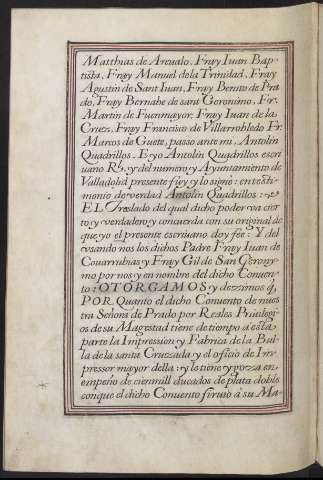 Matthias de Areualo, Fray Iuan Bap
tista, Fray Manuel de la Trinidad, Fray
Agustin de Sant Iuan, Fray Benito de Pra
do, Fray Bernabe de sant Geronimo, Fr.
Martin de Fuenmayor, Fray Iuan de la
Cruz, Fray Francisco de Villarrobledo Fr.
Marcos de Guete, passo ante mi, Antolin
Quadrillos. E yo Antolin Quadrillos escri
uano Rl. y del numero y Ayuntamiento de
Valladolid presente fuy y lo signo: en testi
monio de verdad Antolin Quadrillos:
EL Treslado del qual dicho poder va cier
to y verdadero y concuerda con su original de
que yo el presente escriuano doy fee: Y del
vsando nos los dichos Padre Fray Iuan de
Couarrubias y Fray Gil de San Gerony
mo por nos y en nombre del dicho Conuen
to: OTORGAMOS y dezimos q,
POR Quanto el dicho Conuento de nues
tra Señora de Prado por Reales Priuilegi
os de su Magestad tiene de tiempo a esta
parte la Impression y Fabrica de la Bul
la de la santa Cruzada y el oficio de Im
pressor mayor della: y lo tiene y goza en
empeño de cien mill ducados de plata doble
con que el dicho Conuento siruio à su Ma-